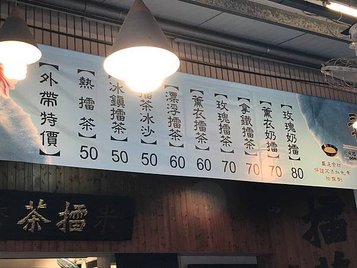 【玫瑰奶擂】80
【薰衣奶擂】70
【拿鐵擂茶】70
【玫瑰擂茶】70
【薰衣擂茶】60
【漂浮擂茶】60
擂茶冰沙】50
冰鎮擂茶】50
【熱擂茶】50
【外帶特價】
茶擂